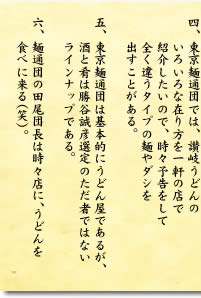 四、東京麺通団では、讃岐うどんの
いろいろな在り方を一軒の店で
紹介したいので、時々予告をして
全く違うタイプの麺やダシを
出すことがある。
五、東京麺通団は基本的にうどん屋であるが、
酒と肴は勝谷誠彦選定のただ者ではない
ラインナップである。
六、麺通団の田尾団長は時々店に、うどんを
食べに来る(笑)。